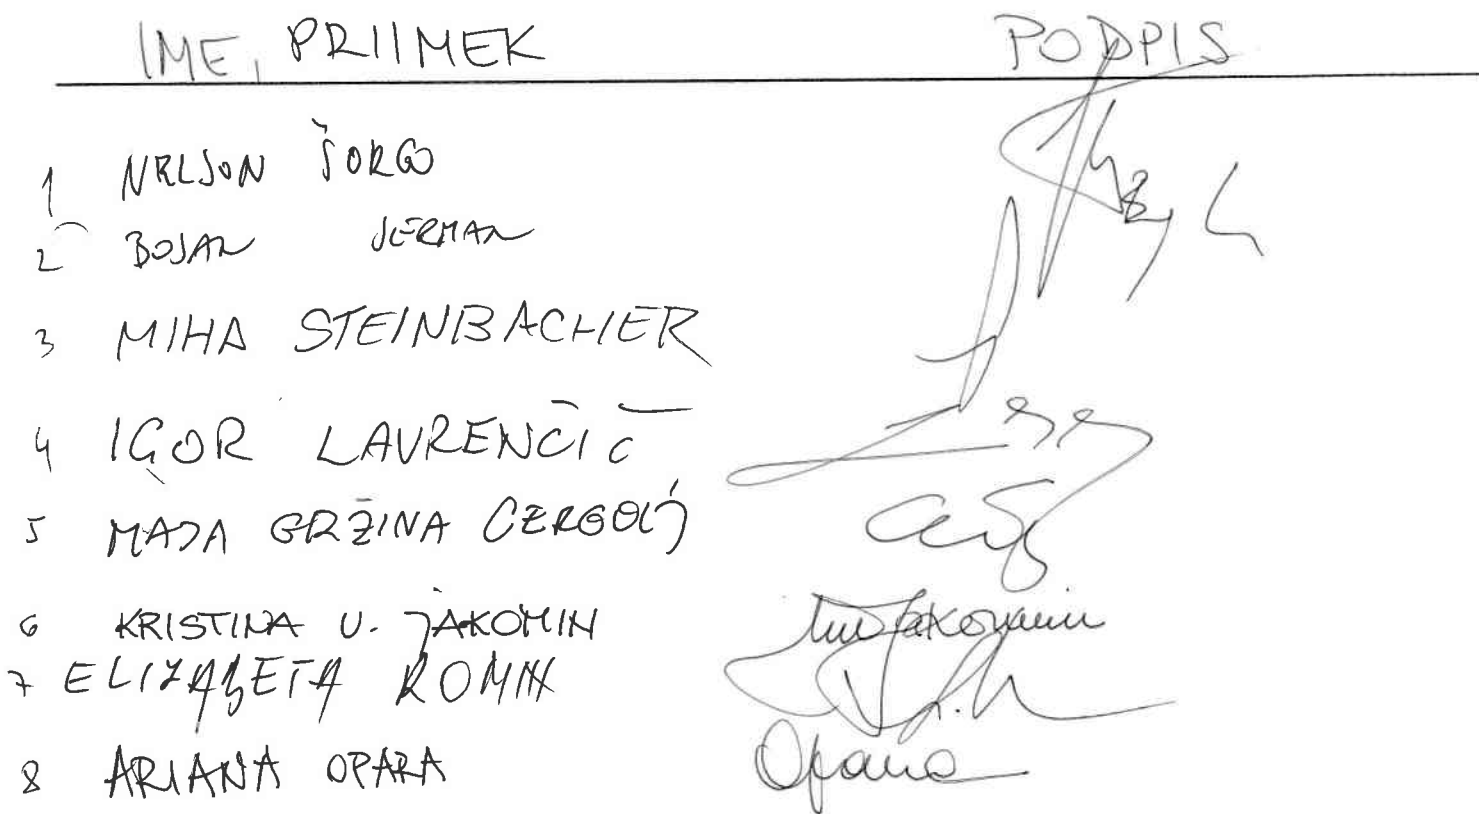 IME, PRIIMEK PODPIS
1 NELSON ŠORGO
2 BOJAN JERMAN
3 MIHA STEINBACHER
4 IGOR LAVRENČIČ
5 MAJA GRŽINA CERGOLJ
6 KRISTINA U. JAKOMIN Jakomin
7 ELIZABETA ROMIH
8 ARIANA OPARA Opara